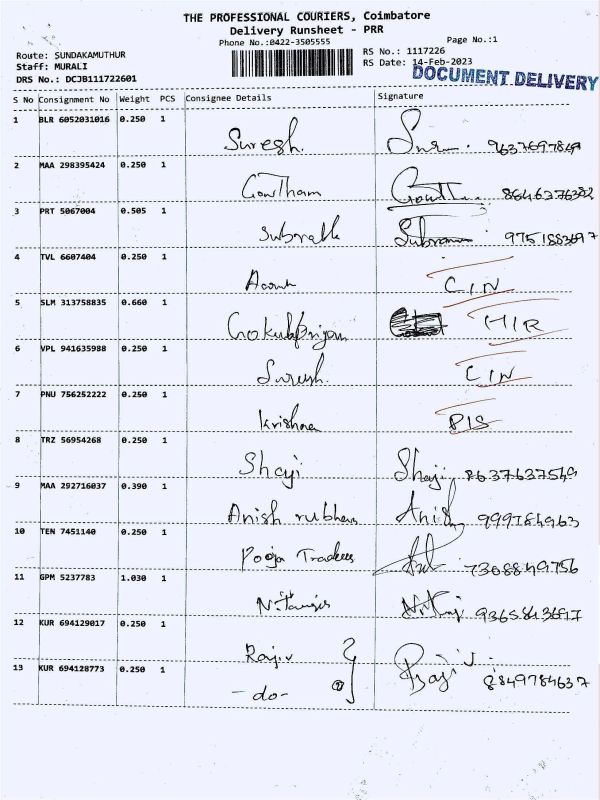 THE PROFESSIONAL COURIERS, Coimbatore
Delivery Runsheet - PRR
Phone No.:0422-3505555
Page No.:1
Route: SUNDAKAMUTHUR
RS No.: 1117226
Staff: MURALI
RS Date: 14-Feb-2023
DRS No.: DCJB111722601
DOCUMENT DELIVERY
S No Consignment No Weight PCS Consignee Details Signature
1 BLR 6052031016 0.250 1
Suresh.
2 MAA 298395424 0.250 1
Gowtham 8646376382
3 PRT 5067004 0.505 1
4 TVL 6607404 0.250 1
CIN
5 SLM 313758835 0.660 1
HIR
6 VPL 941635988 0.250 1
Suresh. CIN
7 PNU 756252222 0.250 1
Krishna PIS
8 TRZ 56954268 0.250 1
Shaji Shaji 8637637549
9 MAA 292716037 0.390 1
Anish rubhan Anish 999784963
10 TEN 7451140 0.250 1
Pooja Traders 7308849756
11 GPM 5237783 1.030 1
9365843697
12 KUR 694129017 0.250 1
Rajiv Rajiv 8849784637
13 KUR 694128773 0.250 1
-do-